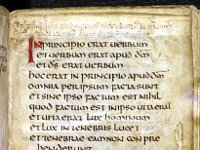 IN PRINCIPIO ERAT UERBUM
ET UERBUM ERAT APUD DM
ET DS ERAT UERBUM
HOC ERAT IN PRINCIPIO APUD DM
OMNIA PER IPSUM FACTA SUNT
ET SINE IPSO FACTUM EST NIHIL
QUOD FACTUM EST IN IPSO UITA ERAT
ET UITA ERAT LUX HOMINUM
ET LUX IN TENEBRIS LUCET
ET TENEBRAE EAM NON CON PRE